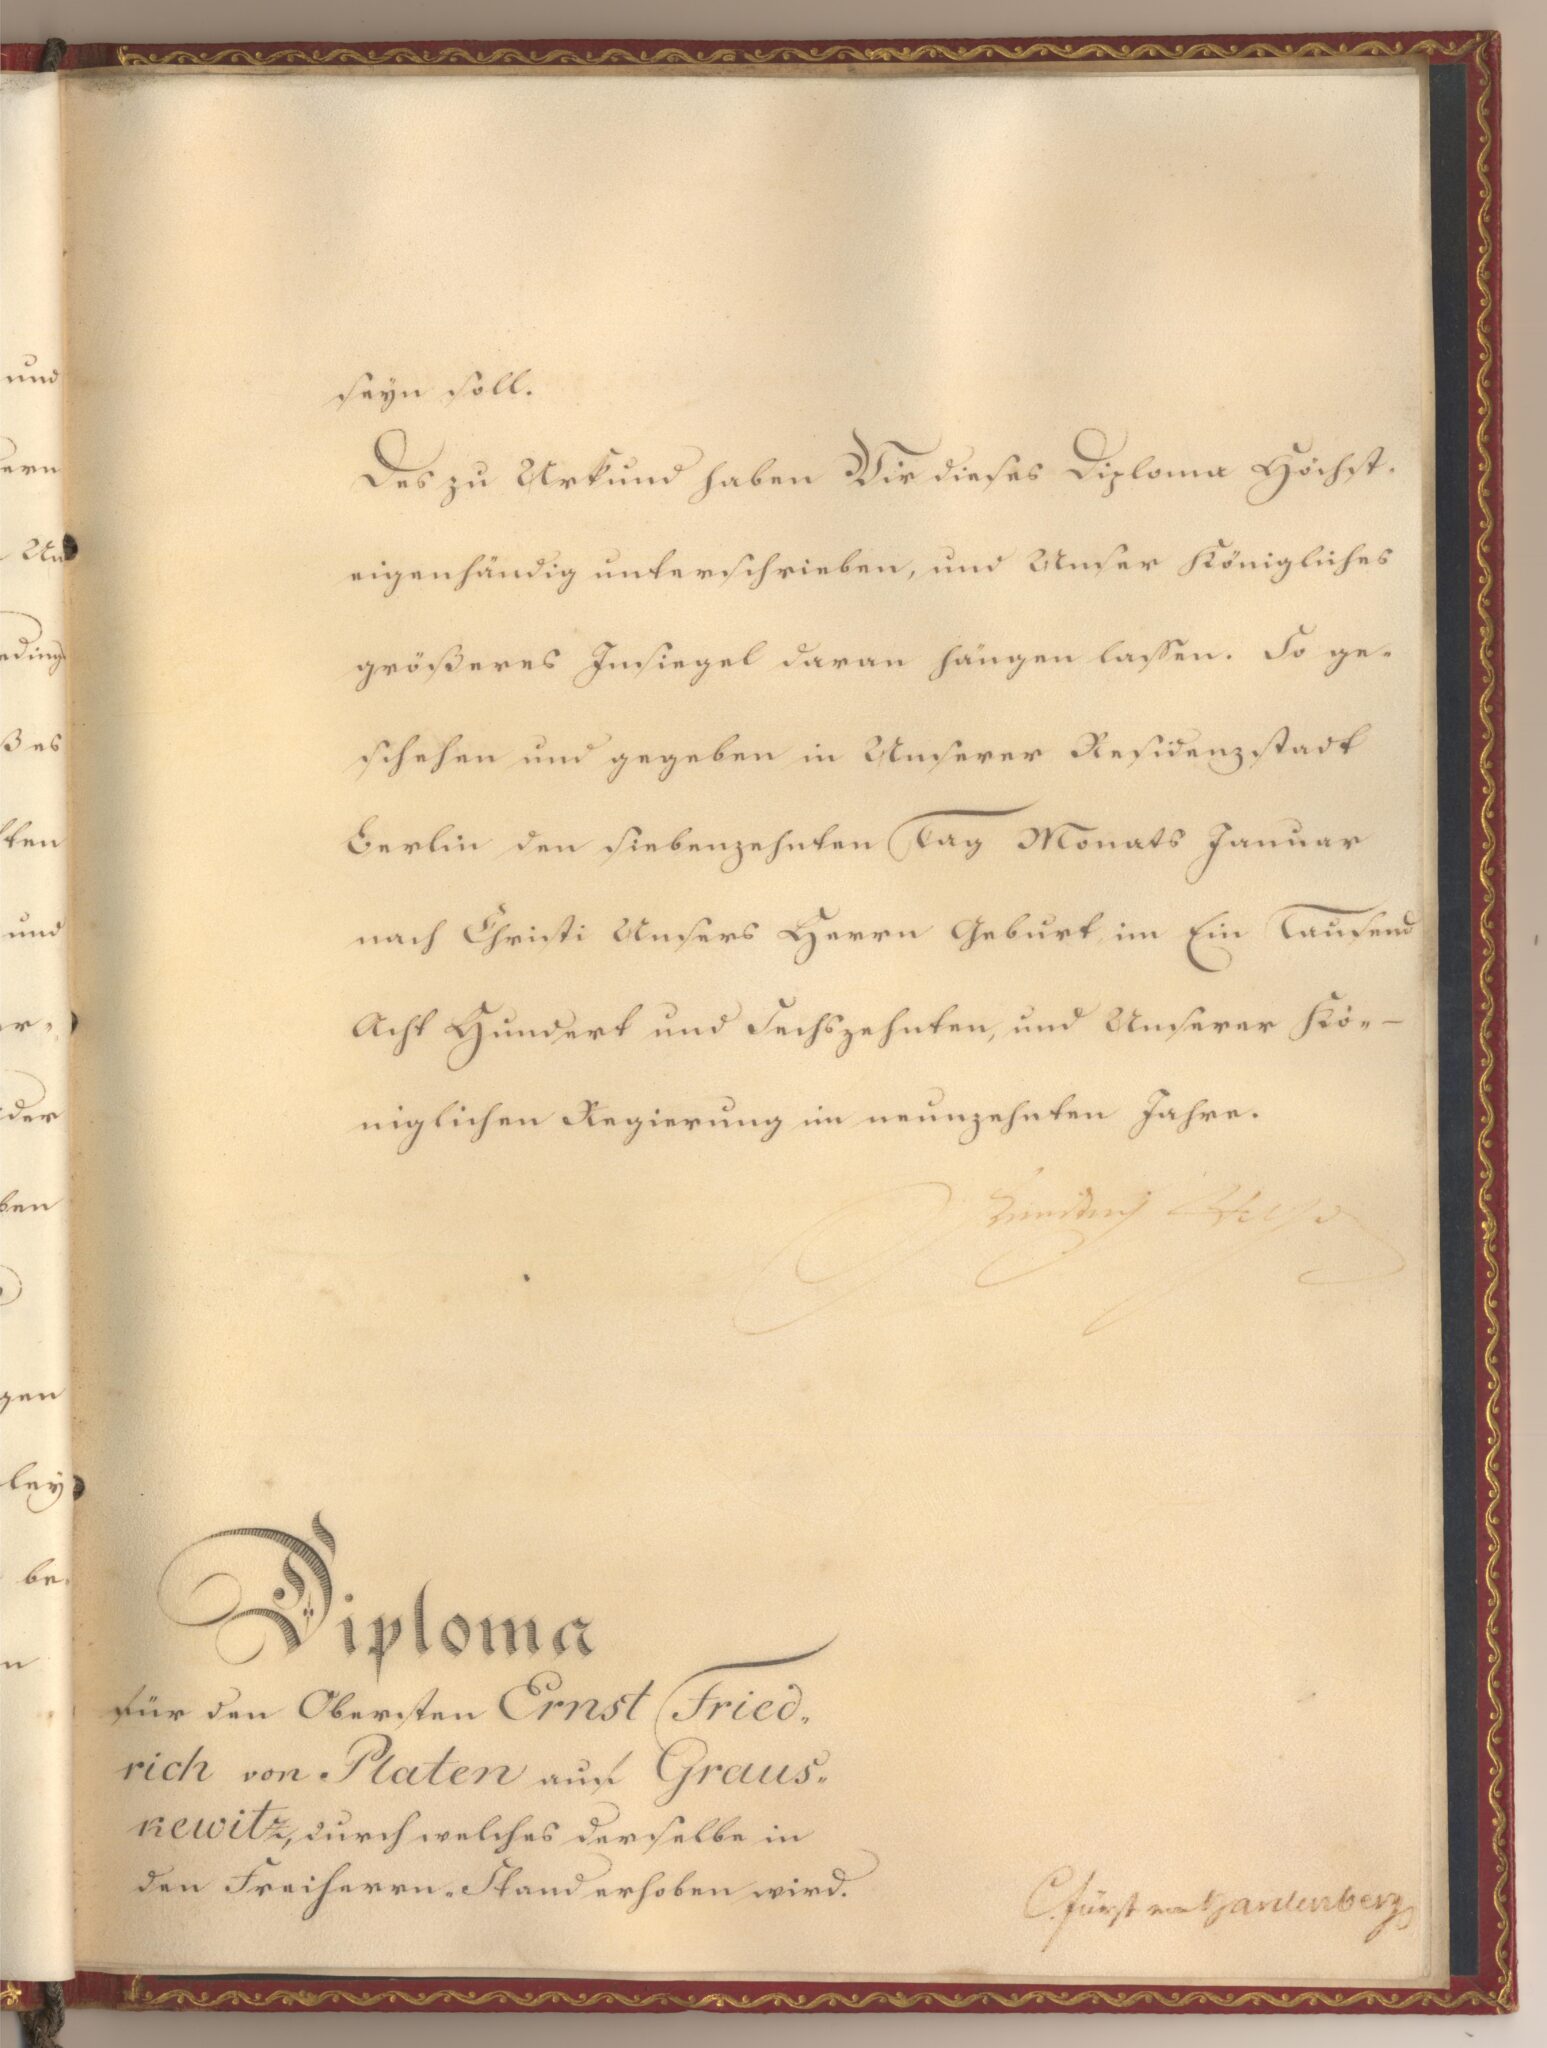 und
ern
Un
eding
ß es
ten
und
er-
der
ben
gen
ley
be-
n
seyn soll.
Des zu Urkund haben Wir dieses Diploma Höchst-
eigenhändig unterschrieben, und Unser Königliches
größeres Insiegel daran hängen lassen. So ge-
schehen und gegeben in Unserer Residenzstadt
Berlin den siebenzehnten Tag Monats Januar
nach Christi Unsers Herrn Geburt, im Ein Tausend
Acht Hundert und Sechszehnten, und Unserer Kö-
niglichen Regierung im neunzehnten Jahre.
Friedrich Wilhelm
Diploma
für den Obersten Ernst Fried-
rich von Platen auf Graus-
kewitz, durch welches derselbe in
den Freiherrn-Stand erhoben wird.
C. Fürst von Hardenberg